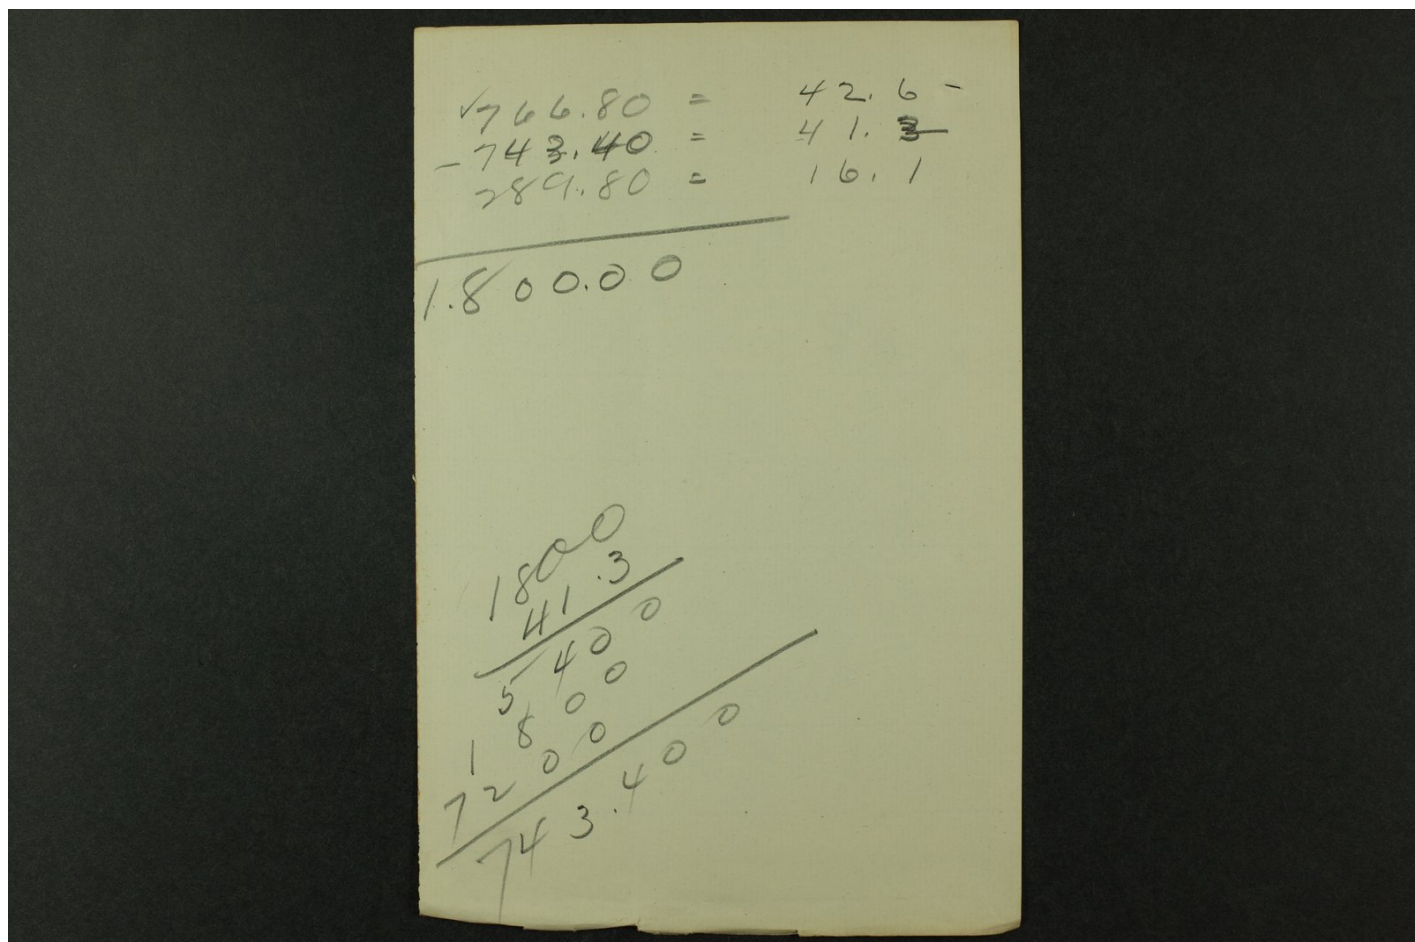 ✓766.80 = 42.6 -
-743.40 = 41.3
289.80 = 16.1
1.800.00
1800
41.3
5400
1800
7200
743.400